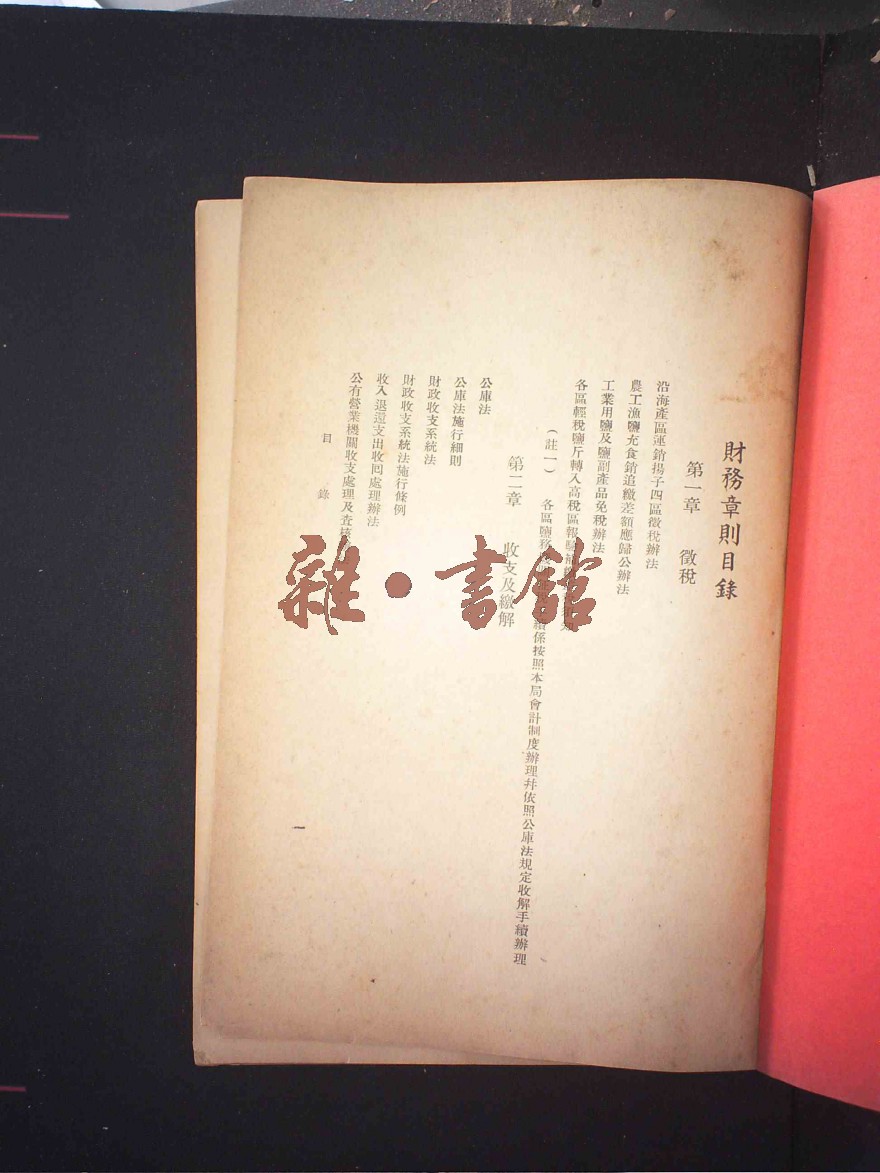 財務章則目錄
第一章 徵稅
沿海產區運銷揚子四區徵稅辦法
農工漁鹽充食銷追繳差額應歸公辦法
工業用鹽及鹽副產品免稅辦法
各區輕稅鹽斤轉入高稅區報驗
(註一) 各區鹽務 係按照本局會計制度辦理幷依照公庫法規定收解手續辦理
第二章 收支及繳解
公庫法
公庫法施行細則
財政收支系統法
財政收支系統法施行條例
收入退還支出收囘處理辦法
公有營業機關收支處理及查核
目錄
一
雜·書館